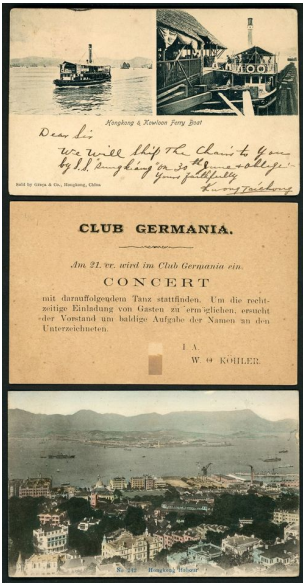 Hongkong & Kowloon Ferry Boat
Dear Sir
We will Ship the Chairs to You
by S.S. on 30th June & oblige
Yours faithfully
Sold by Graça & Co., Hongkong, China
CLUB GERMANIA.
Am 21. cr. wird im Club Germania ein
CONCERT
mit darauffolgendem Tanz stattfinden. Um die recht-
seitige Einladung von Gästen zu ermöglichen, ersucht
der Vorstand um baldige Aufgabe der Namen an den
Unterzeichneten.
I. A.
W. KOHLER.
Hongkong Harbor